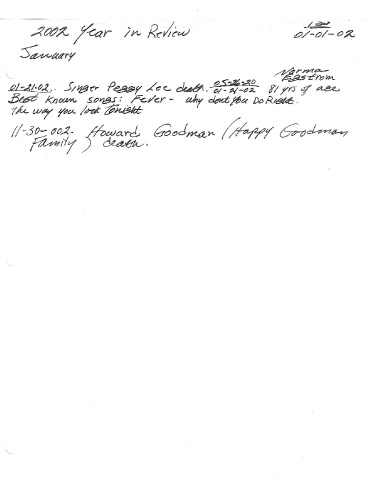 2002 Year in Review
01-01-02
January
Norma
Egstrom
01-21-02. Singer Peggy Lee death. 05-26-20
01-21-02 81 yrs of age
Best Known songs: Fever - why don't You Do Right.
The way you look Tonight
11-30-002- Howard Goodman (Happy Goodman
Family) death.